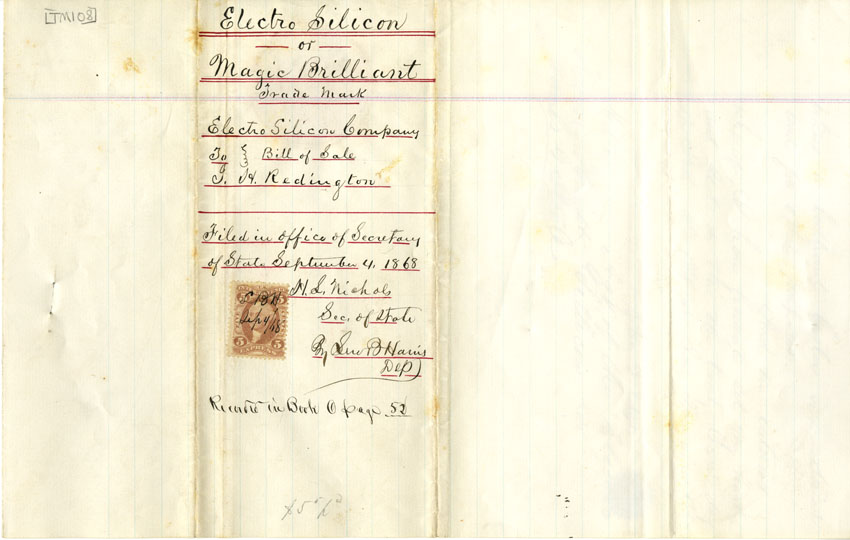 [TM108]
Electro Silicon
or
Magic Brilliant
Trade Mark
Electro Silicon Company
To } Bill of Sale
J. H. Redington
Filed in office of Secretary
of State September 4, 1868
H. L. Nichols
Sec. of State
By Lew B Harris
Dep
5 5
EXPRESS
Sep 4/68
Recorded in Book O page 52